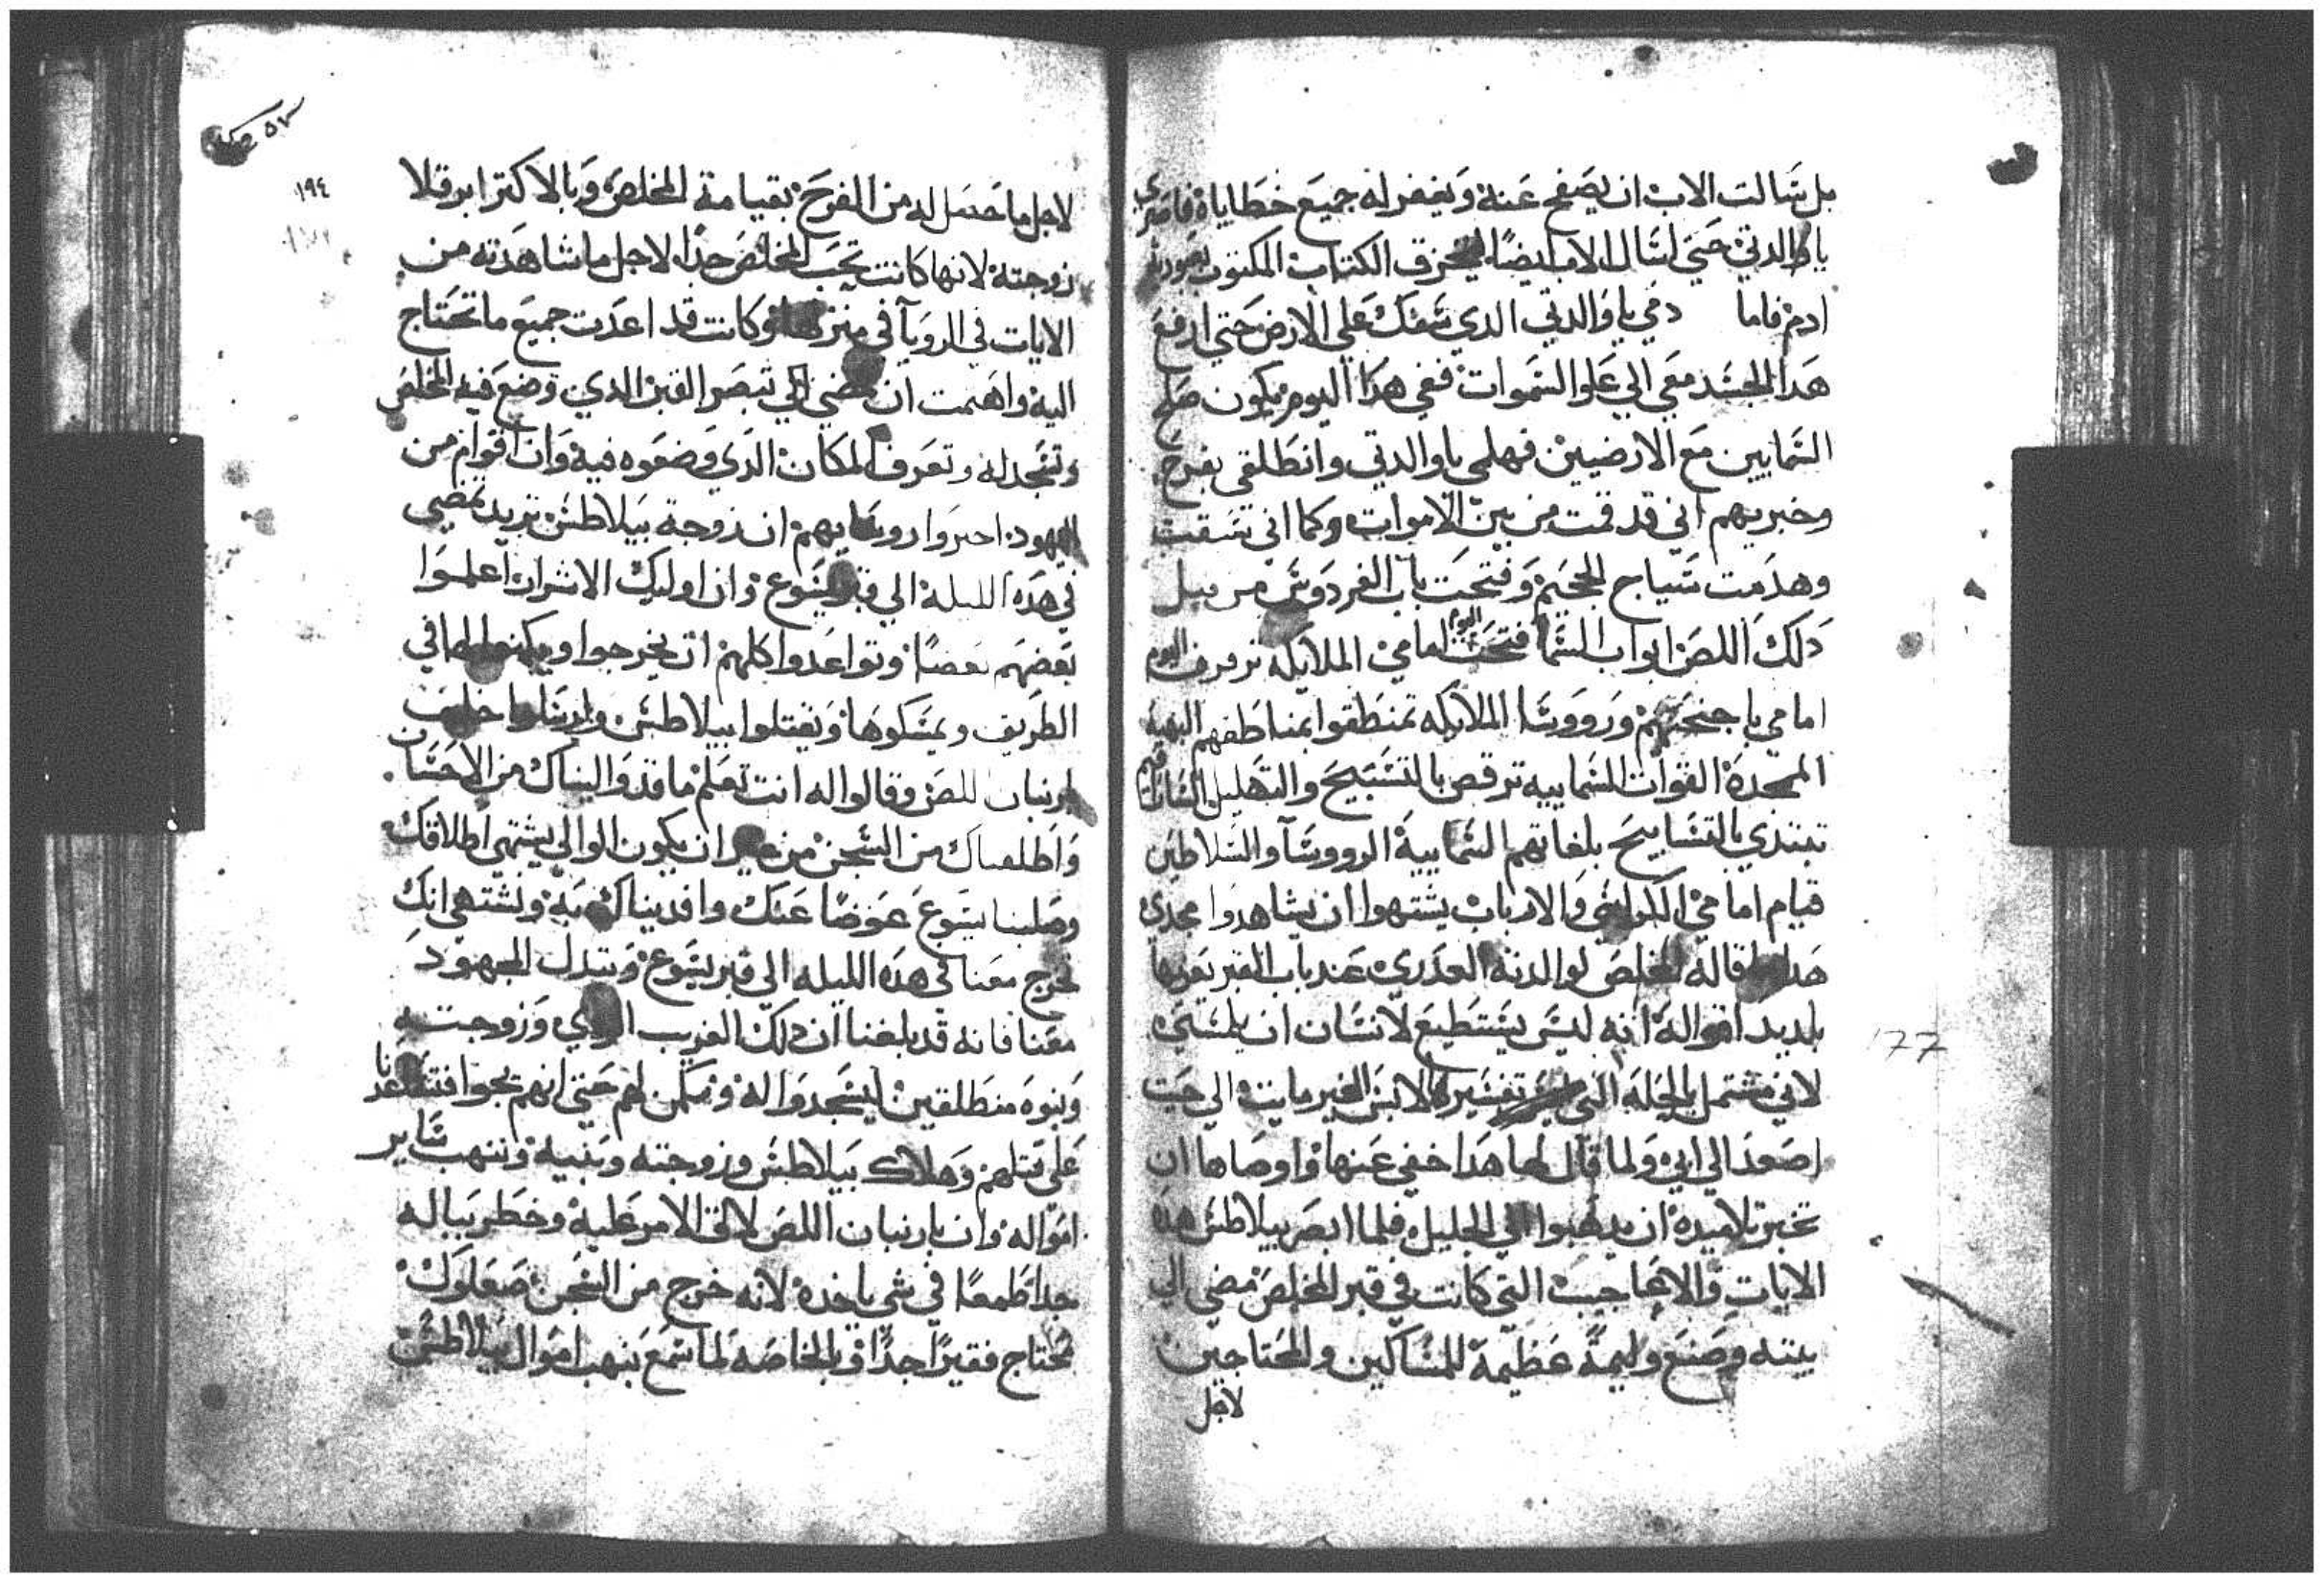 بل سالت الاب ان يصفح عنه ويغفر له جميع خطاياه فاصبري
يا والدتي حتي اسال الاب ايضا ليخرق الكتاب المكتوب
ادم فاما دمي يا والدتي الدي سفك علي الارض حتي ارفع
هدا الجسد معي الي علو السموات ففي هدا اليوم يكون صلح
السمايين مع الارضيين فهلمي يا والدتي وانطلقي بفرح
وخبريهم اني قد قمت من بين الاموات وكما اني سقت
وهدمت سياج الجحيم وفتحت باب الفردوس من قبل
دلك اللص ابواب السما فتحت اليوم امامي الملايكه ترفرف اليوم
امامي باجنحتهم وروسا الملايكه تمنطقوا بمناطقهم البهيه
الممجده القوات السماييه ترقص بالتسبيح والتهليل
تبتدي بالتسابيح بلغاتهم السماييه الرووسا والسلاطين
قيام امامي الكراسي والارباب يشتهوا ان يشاهدوا مجدي
هدا قاله المخلص لوالدته العدري عند باب القبر يعزيها
بلديد اقواله انه ليس يستطيع لانسان ان يلمسني
لاني مشتمل بالحله التي تفسيرها لابس الغير مايت الي حيت
اصعد الي ابي ولما قال لها هدا خفي عنها واوصاها ان
تخبر تلاميده ان يدهبوا الي الجليل فلما ابصر بيلاطس هده
الايات والاعاجيب التي كانت في قبر المخلص مضي الي
بيته وصنع وليمة عظيمة للمساكين والمحتاجين
لاجل
177
١٩٤
لاجل ما حصل له من الفرح بقيامة المخلص وبالاكتر ابروقلا
زوجته لانها كانت تحب المخلص جدا لاجل ما شاهدته من
الايات في الرويا في منزلها وكانت قد اعدت جميع ما تحتاج
اليه واهتمت ان تمضي لكي تبصر القبر الدي وضع فيه المخلص
وتسجد له وتعرف المكان الدي وضعوه فيه وان اقوام من
اليهود اخبروا روسايهم ان زوجة بيلاطس تريد تمضي
في هده الليلة الي قبر يسوع وان اوليك الاشرار اعلموا
بعضهم بعضا وتواعدوا كلهم ان يخرجوا ويكمنوا لها في
الطريق ويمسكوها ويقتلوا بيلاطس وارسلوا خلف
بارنبان اللص وقالوا له انت تعلم ما قدوا اليناك من الاحسان
واطلقناك من السجن من غير ان يكون الوالي يشتهي اطلاقك
وصلبنا يسوع عوضا عنك وافديناك به ونشتهي انك
تخرج معنا في هده الليله الي قبر يسوع وتبدل المجهود
معنا فانه قد بلغنا ان دلك الغريب الردي وزوجته
وبنوه منطلقين ليسجدوا له ونكمن لهم حتي انهم يجوا فتساعدنا
علي قتلهم وهلاك بيلاطس وزوجته وبنيه وننهب ساير
امواله وان بارنبان اللص لاق الامر عليه وخطر بباله
جدا طمعا في شي ياخده لانه خرج من السجن صعلوك
محتاج فقيرا جدا وبالخاصه لما سمع بنهب اموال بيلاطس